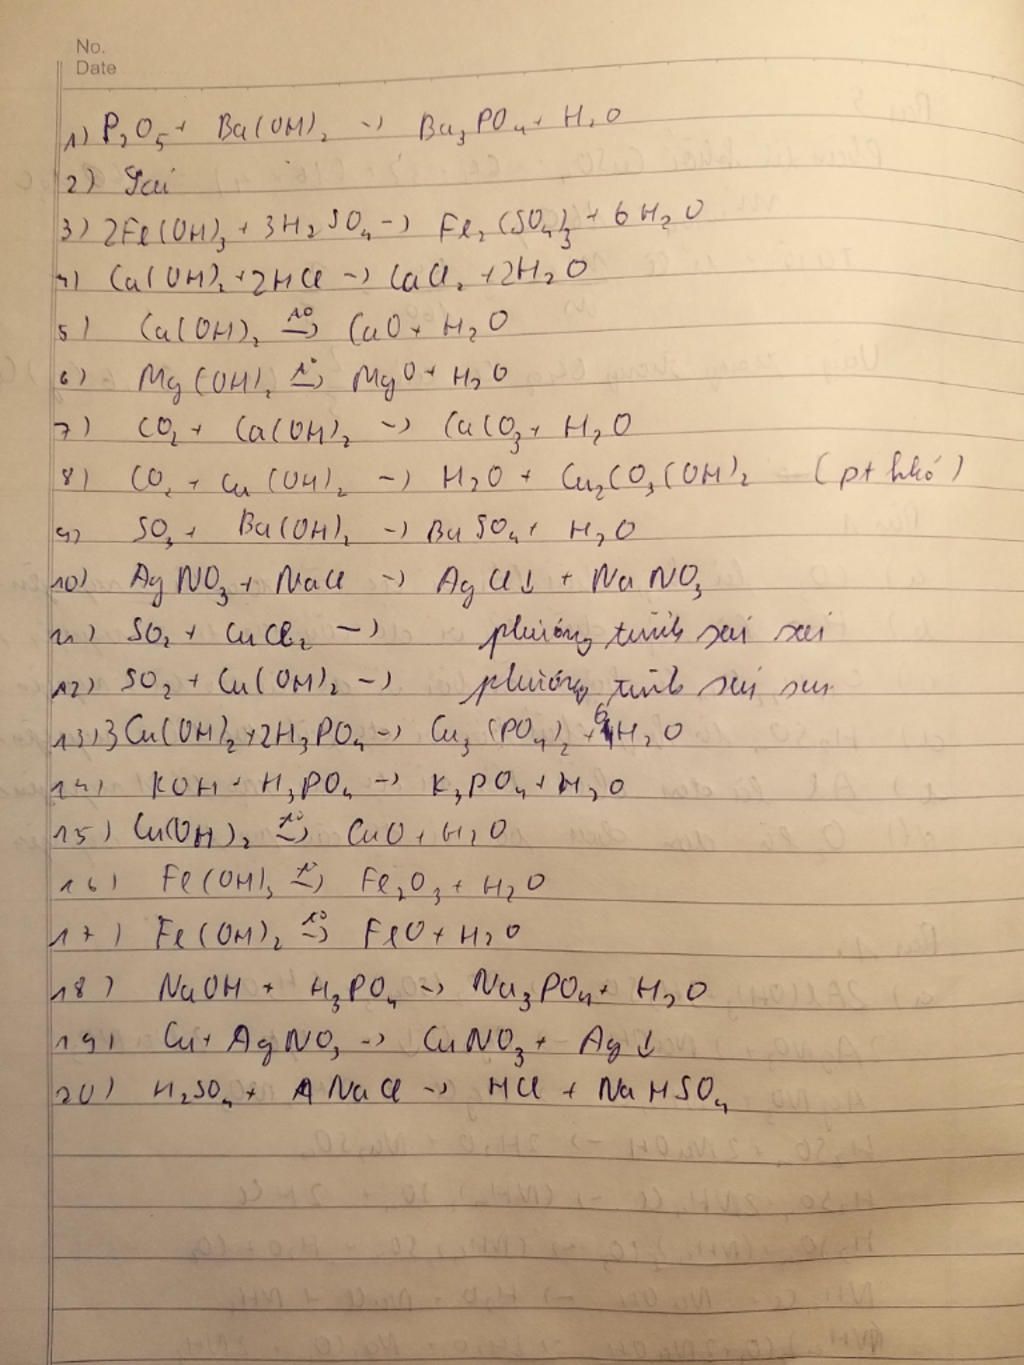 No.
Date
1) P₂O₅ + Ba(OH)₂ -> Ba₃PO₄ + H₂O
2) Sai
3) 2Fe(OH)₃ + 3H₂SO₄ -> Fe₂(SO₄)₃ + 6H₂O
4) Ca(OH)₂ + 2HCl -> CaCl₂ + 2H₂O
5) Ca(OH)₂ -t°-> CaO + H₂O
6) Mg(OH)₂ -t°-> MgO + H₂O
7) CO₂ + Ca(OH)₂ -> CaCO₃ + H₂O
8) CO₂ + Cu(OH)₂ -> H₂O + Cu₂CO₃(OH)₂ (pt khó)
9) SO₃ + Ba(OH)₂ -> BaSO₄ + H₂O
10) AgNO₃ + NaCl -> AgCl↓ + NaNO₃
11) SO₂ + CuCl₂ -> phương trình sai sai
12) SO₂ + Cu(OH)₂ -> phương trình sai sai
13) 3Cu(OH)₂ + 2H₃PO₄ -> Cu₃(PO₄)₂ + 6H₂O
14) KOH + H₃PO₄ -> K₃PO₄ + H₂O
15) Cu(OH)₂ -t°-> CuO + H₂O
16) Fe(OH)₃ -t°-> Fe₂O₃ + H₂O
17) Fe(OH)₂ -t°-> FeO + H₂O
18) NaOH + H₃PO₄ -> Na₃PO₄ + H₂O
19) Cu + AgNO₃ -> CuNO₃ + Ag↓
20) H₂SO₄ + NaCl -> HCl + NaHSO₄